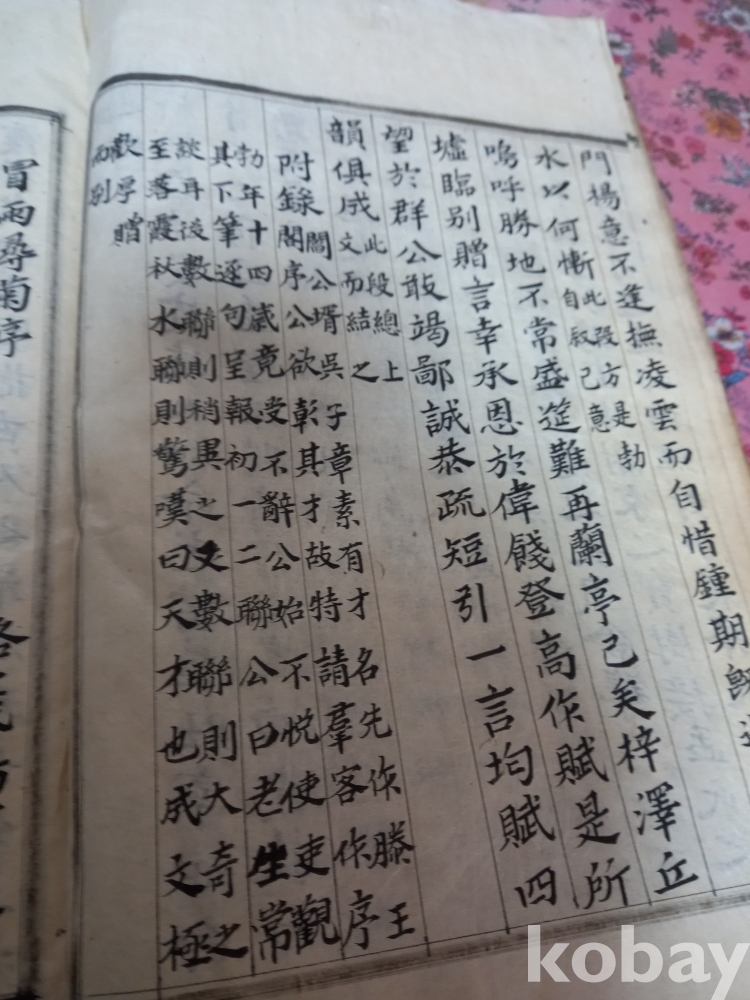 門楊意不逢撫凌雲而自惜鍾期既
水以何慚此段方是勃
自叙己意
嗚呼勝地不常盛筵難再蘭亭已矣梓澤丘
墟臨別贈言幸承恩於偉餞登高作賦是所
望於群公敢竭鄙誠恭疏短引一言均賦四
韻俱成此段總上
文而結之
附錄閻公壻吳子章素有才名先作滕王
閣序公欲彰其才故特請羣客作序
勃年十四歲竟受不辭公始不悦使吏觀
其下筆逐句呈報初一二聯公曰老生常
談耳後數聯則稍異之又數聯則大奇之
至落霞秋水聯則驚嘆曰天才也成文極
歡厚贈
而別
冒雨尋菊序
kobay